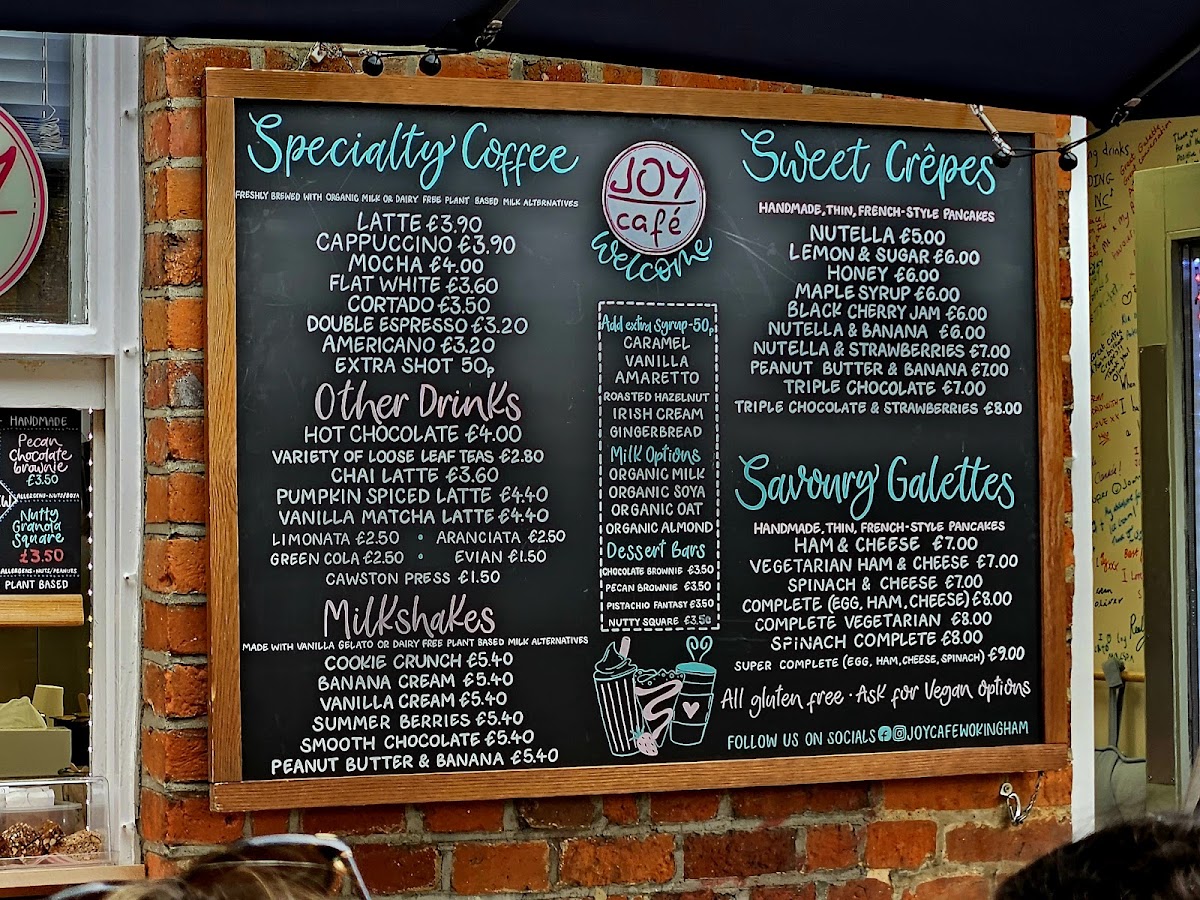 Specialty Coffee
FRESHLY BREWED WITH ORGANIC MILK OR DAIRY FREE PLANT BASED MILK ALTERNATIVES
LATTE £3.90
CAPPUCCINO £3.90
MOCHA £4.00
FLAT WHITE £3.60
CORTADO £3.50
DOUBLE ESPRESSO £3.20
AMERICANO £3.20
EXTRA SHOT 50p
Other Drinks
HOT CHOCOLATE £4.00
VARIETY OF LOOSE LEAF TEAS £2.80
CHAI LATTE £3.60
PUMPKIN SPICED LATTE £4.40
VANILLA MATCHA LATTE £4.40
LIMONATA £2.50 • ARANCIATA £2.50
GREEN COLA £2.50 • EVIAN £1.50
CAWSTON PRESS £1.50
Milkshakes
MADE WITH VANILLA GELATO OR DAIRY FREE PLANT BASED MILK ALTERNATIVES
COOKIE CRUNCH £5.40
BANANA CREAM £5.40
VANILLA CREAM £5.40
SUMMER BERRIES £5.40
SMOOTH CHOCOLATE £5.40
PEANUT BUTTER & BANANA £5.40
JOY
café
welcome
Add extra syrup-50p
CARAMEL
VANILLA
AMARETTO
ROASTED HAZELNUT
IRISH CREAM
GINGERBREAD
Milk Options
ORGANIC MILK
ORGANIC SOYA
ORGANIC OAT
ORGANIC ALMOND
Dessert Bars
CHOCOLATE BROWNIE £3.50
PECAN BROWNIE £3.50
PISTACHIO FANTASY £3.50
NUTTY SQUARE £3.50
Sweet Crêpes
HANDMADE, THIN, FRENCH-STYLE PANCAKES
NUTELLA £5.00
LEMON & SUGAR £6.00
HONEY £6.00
MAPLE SYRUP £6.00
BLACK CHERRY JAM £6.00
NUTELLA & BANANA £6.00
NUTELLA & STRAWBERRIES £7.00
PEANUT BUTTER & BANANA £7.00
TRIPLE CHOCOLATE £7.00
TRIPLE CHOCOLATE & STRAWBERRIES £8.00
Savoury Galettes
HANDMADE, THIN, FRENCH-STYLE PANCAKES
HAM & CHEESE £7.00
VEGETARIAN HAM & CHEESE £7.00
SPINACH & CHEESE £7.00
COMPLETE (EGG, HAM, CHEESE) £8.00
COMPLETE VEGETARIAN £8.00
SPINACH COMPLETE £8.00
SUPER COMPLETE (EGG, HAM, CHEESE, SPINACH) £9.00
All gluten free · Ask for Vegan options
FOLLOW US ON SOCIALS JOYCAFEWOKINGHAM
HANDMADE
Pecan
Chocolate
brownie
£3.50
ALLERGENS-NUTS/SOYA
Nutty
Granola
Square
£3.50
ALLERGENS-NUTS/PEANUTS
PLANT BASED